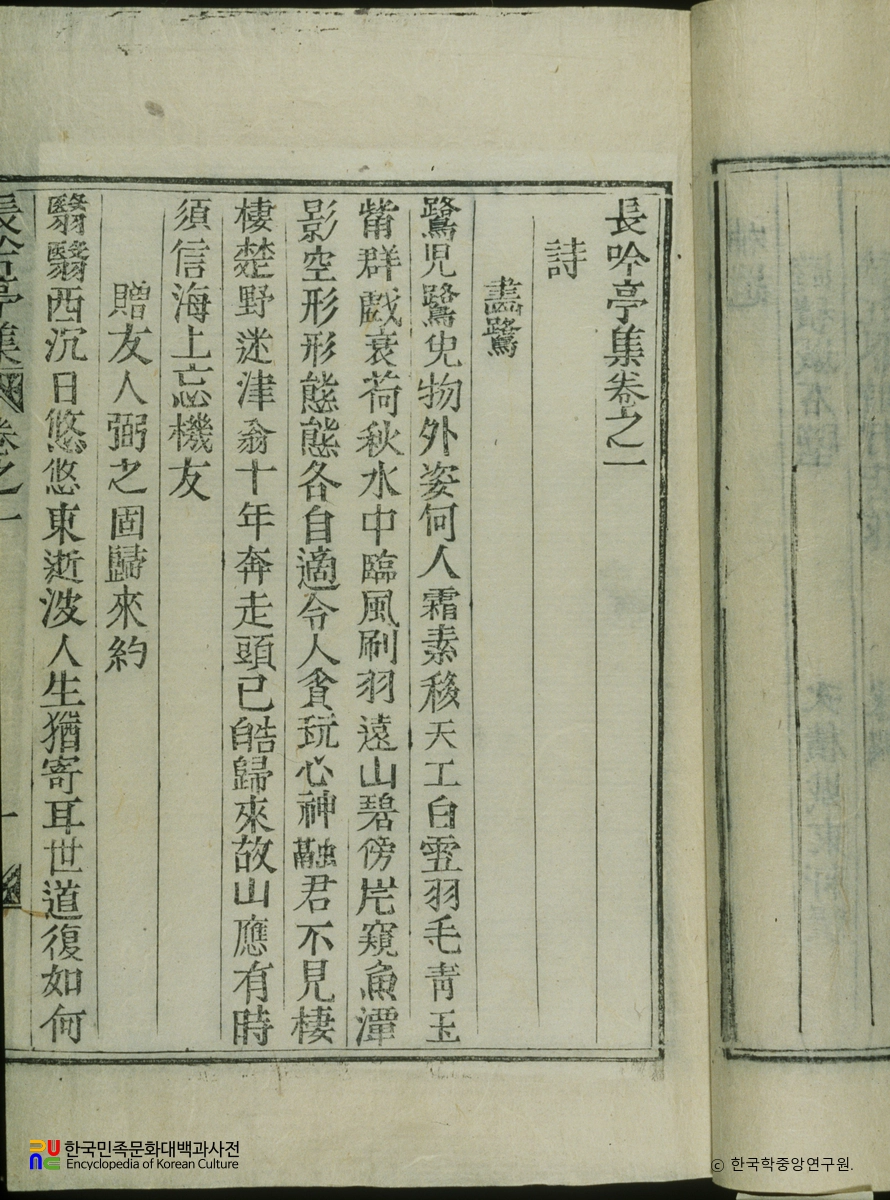 長吟亭集卷之一
詩
畵鷺
鷺児鷺児物外姿何人霜素移天工白雪羽毛靑玉
觜群戱衰荷秋水中臨風刷羽遠山碧傍岸窺魚潭
影空形形態態各自適令人貪玩心神融君不見棲
棲楚野迷津翁十年奔走頭已皓歸來故山應有時
須信海上忘機友
贈友人弼之固歸來約
翳翳西沉日悠悠東逝波人生猶寄耳世道復如何
長吟亭集 卷之一 一
한국민족문화대백과사전
Encyclopedia of Korean Culture
© 한국학중앙연구원.